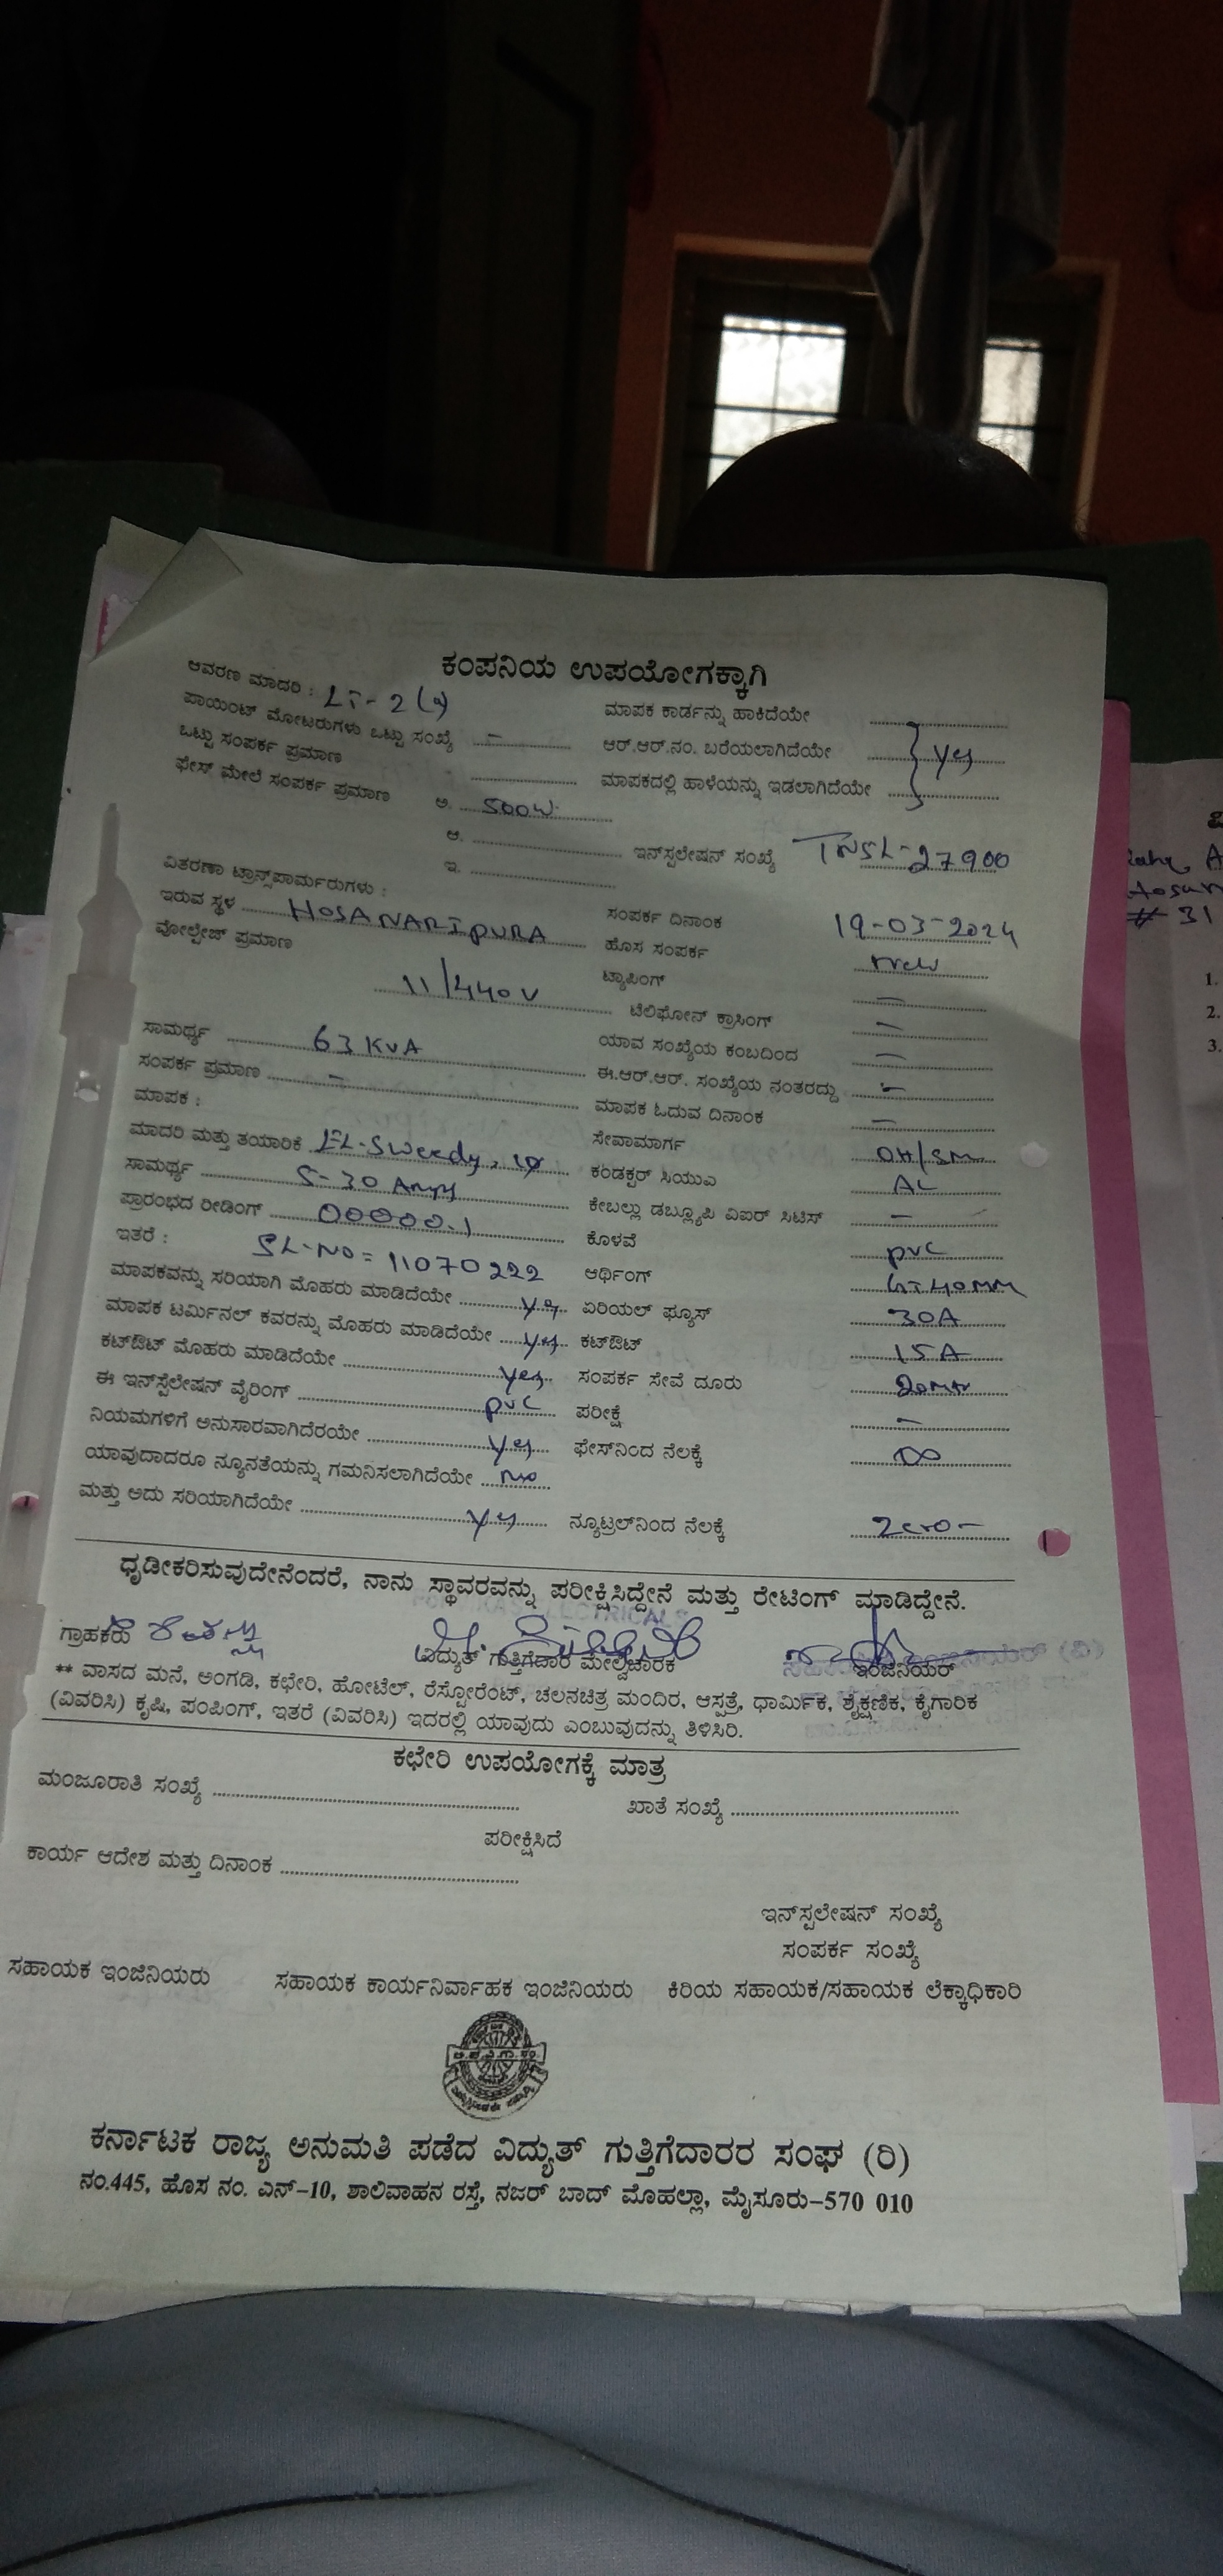 ಕಂಪನಿಯ ಉಪಯೋಗಕ್ಕಾಗಿ
ಆವರಣ ಮಾದರಿ : LT-2(a)
ಪಾಯಿಂಟ್ ಮೋಟರುಗಳು ಒಟ್ಟು ಸಂಖ್ಯೆ –
ಒಟ್ಟು ಸಂಪರ್ಕ ಪ್ರಮಾಣ
ಫೇಸ್ ಮೇಲೆ ಸಂಪರ್ಕ ಪ್ರಮಾಣ ಅ. 500W
ಆ.
ಇ.
ಮಾಪಕ ಕಾರ್ಡನ್ನು ಹಾಕಿದೆಯೇ
ಆರ್.ಆರ್.ನಂ. ಬರೆಯಲಾಗಿದೆಯೇ Yes
ಮಾಪಕದಲ್ಲಿ ಹಾಳೆಯನ್ನು ಇಡಲಾಗಿದೆಯೇ
ಇನ್‌ಸ್ಪಲೇಷನ್ ಸಂಖ್ಯೆ TNSL-27900
ವಿತರಣಾ ಟ್ರಾನ್ಸ್‌ಪಾರ್ಮರುಗಳು :
ಇರುವ ಸ್ಥಳ HOSANARIPURA
ವೋಲ್ಟೇಜ್ ಪ್ರಮಾಣ
11/440V
ಸಾಮರ್ಥ್ಯ 63 KVA
ಸಂಪರ್ಕ ಪ್ರಮಾಣ –
ಮಾಪಕ :
ಮಾದರಿ ಮತ್ತು ತಯಾರಿಕೆ EL-Sweedy, 1φ
ಸಾಮರ್ಥ್ಯ 5-30 Amps
ಪ್ರಾರಂಭದ ರೀಡಿಂಗ್ 00000.1
ಇತರೆ : SL-NO = 11070222
ಮಾಪಕವನ್ನು ಸರಿಯಾಗಿ ಮೊಹರು ಮಾಡಿದೆಯೇ Yes
ಮಾಪಕ ಟರ್ಮಿನಲ್ ಕವರನ್ನು ಮೊಹರು ಮಾಡಿದೆಯೇ Yes
ಕಟ್‌ಔಟ್ ಮೊಹರು ಮಾಡಿದೆಯೇ Yes
ಈ ಇನ್‌ಸ್ಪೆಲೇಷನ್ ವೈರಿಂಗ್ pvc
ನಿಯಮಗಳಿಗೆ ಅನುಸಾರವಾಗಿದೆರಯೇ Yes
ಯಾವುದಾದರೂ ನ್ಯೂನತೆಯನ್ನು ಗಮನಿಸಲಾಗಿದೆಯೇ No
ಮತ್ತು ಅದು ಸರಿಯಾಗಿದೆಯೇ Yes
ಸಂಪರ್ಕ ದಿನಾಂಕ 19-03-2024
ಹೊಸ ಸಂಪರ್ಕ New
ಟ್ಯಾಪಿಂಗ್ –
ಟೆಲಿಫೋನ್ ಕ್ರಾಸಿಂಗ್ –
ಯಾವ ಸಂಖ್ಯೆಯ ಕಂಬದಿಂದ –
ಈ.ಆರ್.ಆರ್. ಸಂಖ್ಯೆಯ ನಂತರದ್ದು –
ಮಾಪಕ ಓದುವ ದಿನಾಂಕ –
ಸೇವಾಮಾರ್ಗ OH/SM
ಕಂಡಕ್ಟರ್ ಸಿಯುಎ AL
ಕೇಬಲ್ಲು ಡಬ್ಲ್ಯೂಪಿ ವಿಐರ್ ಸಿಟಿಸ್ –
ಕೊಳವೆ pvc
ಆರ್ಥಿಂಗ್ GI 40MM
ಏರಿಯಲ್ ಫ್ಯೂಸ್ 30A
ಕಟ್‌ಔಟ್ 15A
ಸಂಪರ್ಕ ಸೇವೆ ದೂರು 20Mtr
ಪರೀಕ್ಷೆ –
ಫೇಸ್‌ನಿಂದ ನೆಲಕ್ಕೆ ∞
ನ್ಯೂಟ್ರಲ್‌ನಿಂದ ನೆಲಕ್ಕೆ Zero-
ಧೃಡೀಕರಿಸುವುದೇನೆಂದರೆ, ನಾನು ಸ್ಥಾವರವನ್ನು ಪರೀಕ್ಷಿಸಿದ್ದೇನೆ ಮತ್ತು ರೇಟಿಂಗ್ ಮಾಡಿದ್ದೇನೆ.
ಗ್ರಾಹಕರು ವಿದ್ಯುತ್ ಗುತ್ತಿಗೆದಾರ ಮೇಲ್ವಿಚಾರಕ ಇಂಜಿನಿಯರ್
** ವಾಸದ ಮನೆ, ಅಂಗಡಿ, ಕಛೇರಿ, ಹೋಟೆಲ್, ರೆಸ್ಟೋರೆಂಟ್, ಚಲನಚಿತ್ರ ಮಂದಿರ, ಆಸ್ಪತ್ರೆ, ಧಾರ್ಮಿಕ, ಶೈಕ್ಷಣಿಕ, ಕೈಗಾರಿಕ
(ವಿವರಿಸಿ) ಕೃಷಿ, ಪಂಪಿಂಗ್, ಇತರೆ (ವಿವರಿಸಿ) ಇದರಲ್ಲಿ ಯಾವುದು ಎಂಬುವುದನ್ನು ತಿಳಿಸಿರಿ.
ಕಛೇರಿ ಉಪಯೋಗಕ್ಕೆ ಮಾತ್ರ
ಮಂಜೂರಾತಿ ಸಂಖ್ಯೆ ಖಾತೆ ಸಂಖ್ಯೆ
ಪರೀಕ್ಷಿಸಿದೆ
ಕಾರ್ಯ ಆದೇಶ ಮತ್ತು ದಿನಾಂಕ
ಇನ್‌ಸ್ಪಲೇಷನ್ ಸಂಖ್ಯೆ
ಸಂಪರ್ಕ ಸಂಖ್ಯೆ
ಸಹಾಯಕ ಇಂಜಿನಿಯರು ಸಹಾಯಕ ಕಾರ್ಯನಿರ್ವಾಹಕ ಇಂಜಿನಿಯರು ಕಿರಿಯ ಸಹಾಯಕ/ಸಹಾಯಕ ಲೆಕ್ಕಾಧಿಕಾರಿ
ಕರ್ನಾಟಕ ರಾಜ್ಯ ಅನುಮತಿ ಪಡೆದ ವಿದ್ಯುತ್ ಗುತ್ತಿಗೆದಾರರ ಸಂಘ (ರಿ)
ನಂ.445, ಹೊಸ ನಂ. ಎನ್-10, ಶಾಲಿವಾಹನ ರಸ್ತೆ, ನಜರ್ ಬಾದ್ ಮೊಹಲ್ಲಾ, ಮೈಸೂರು-570 010
# 31
1.
2.
3.